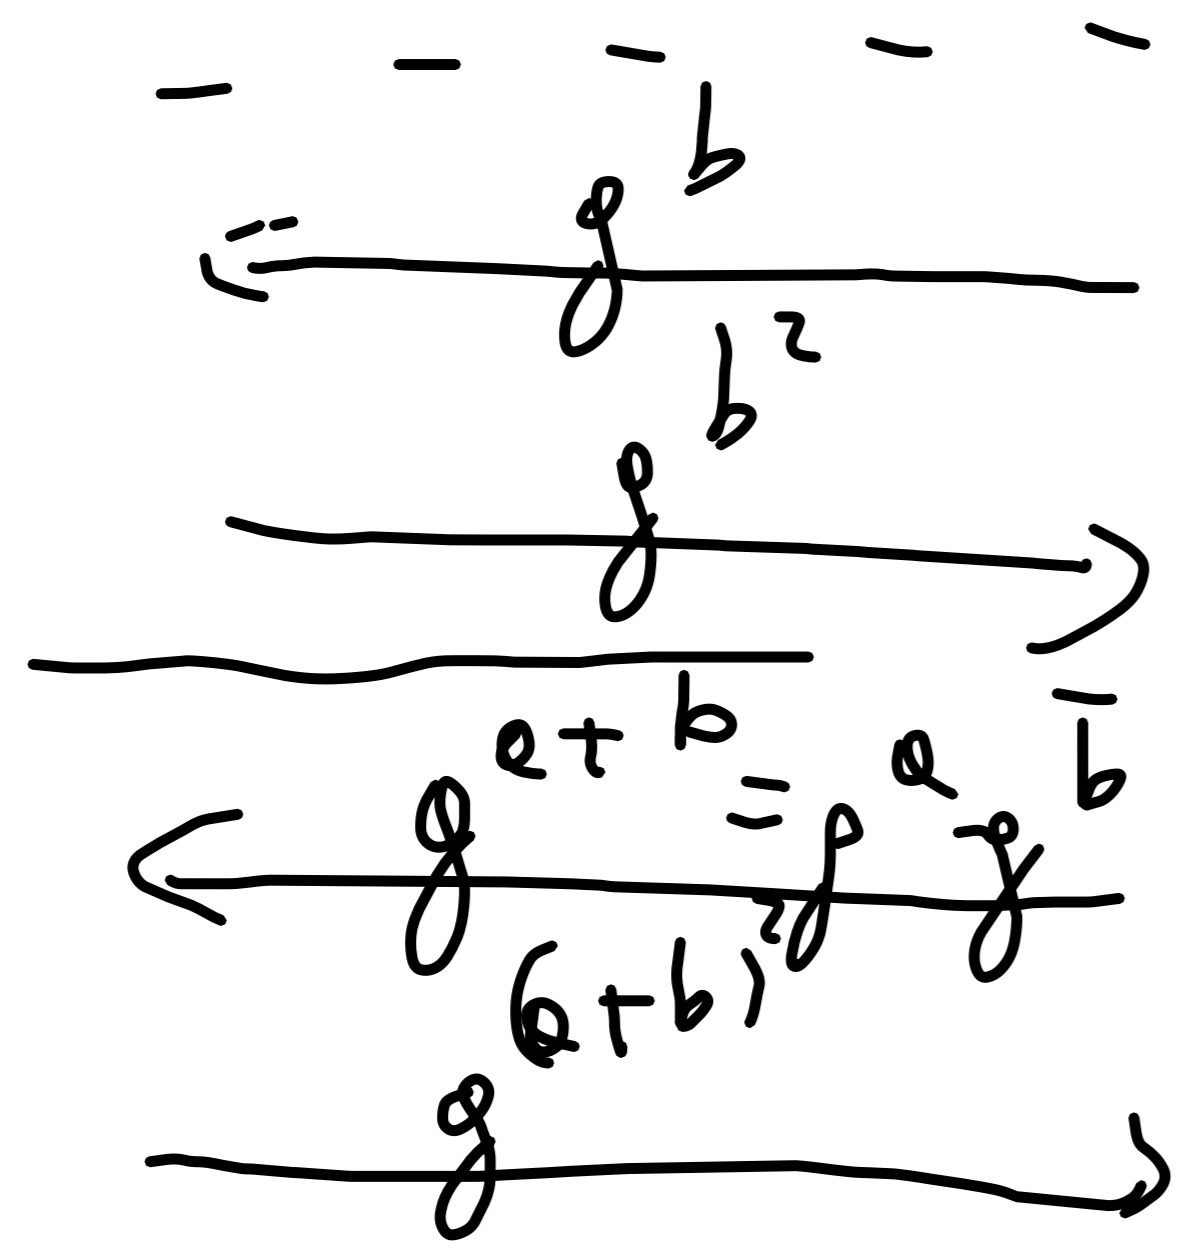 g^b
g^{b^2}
g^{a+b} = g^a · g^b
g^{(a+b)^2}